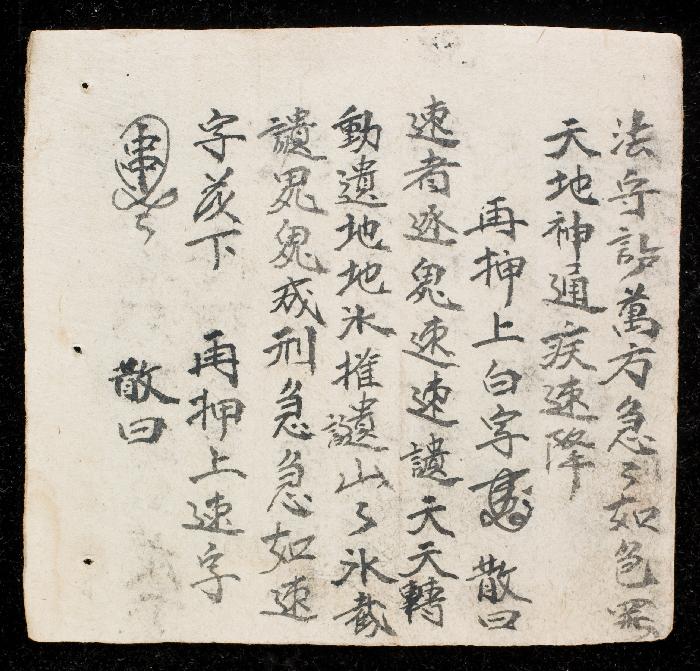 法字訬萬方急〻如邑
天地神通疾速降
再押上白字 散曰
速者逐鬼速速讉天天轉
動遺地地氷摧讉山〻氷截
讉鬼鬼成刑急急如速
字炁下 再押上速字
散曰